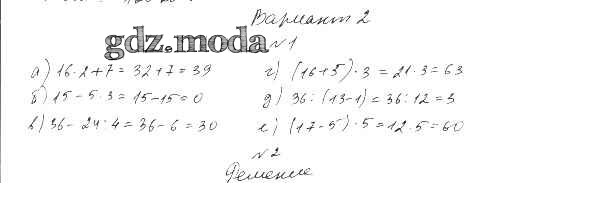 Вариант 2
gdz.moda
№1
а) 16·2+7=32+7=39
г) (16+5)·3=21·3=63
б) 15-5·3=15-15=0
д) 36:(13-1)=36:12=3
в) 36-24:4=36-6=30
е) (17-5)·5=12·5=60
№2
Решение